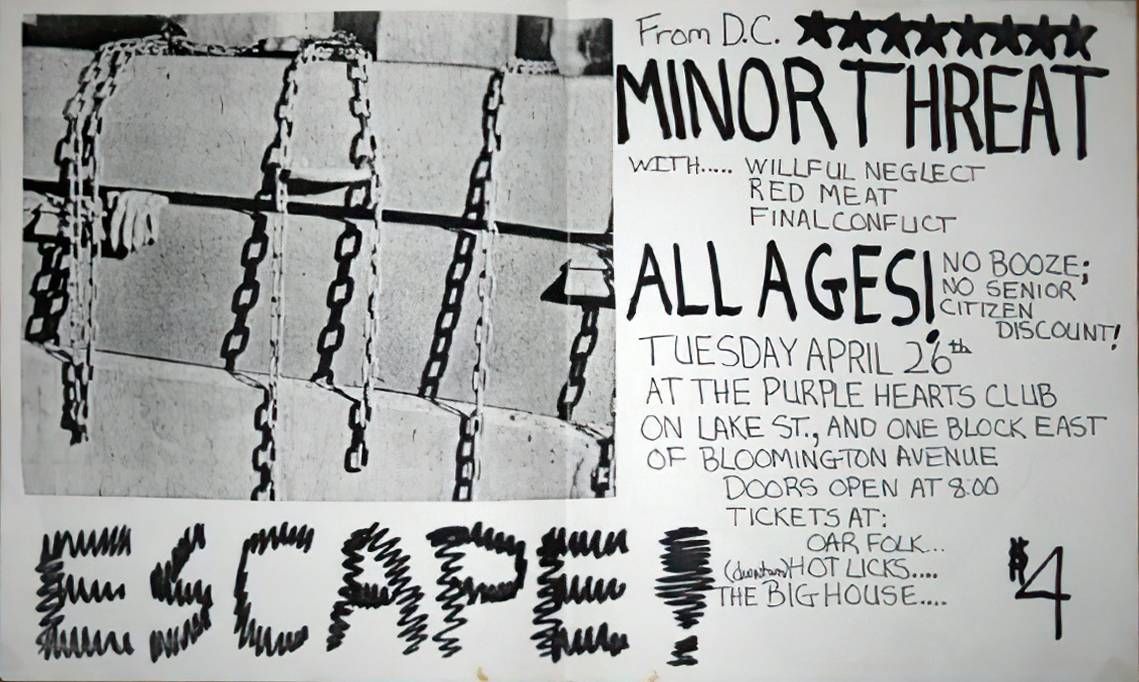 From D.C.
MINOR THREAT
WITH..... WILLFUL NEGLECT
RED MEAT
FINAL CONFLICT
ALL AGES!
NO BOOZE;
NO SENIOR
CITIZEN
DISCOUNT!
TUESDAY APRIL 26th
AT THE PURPLE HEARTS CLUB
ON LAKE ST., AND ONE BLOCK EAST
OF BLOOMINGTON AVENUE
DOORS OPEN AT 8:00
TICKETS AT:
OAR FOLK...
(downtown) HOT LICKS....
THE BIG HOUSE....
$4
ESCAPE!